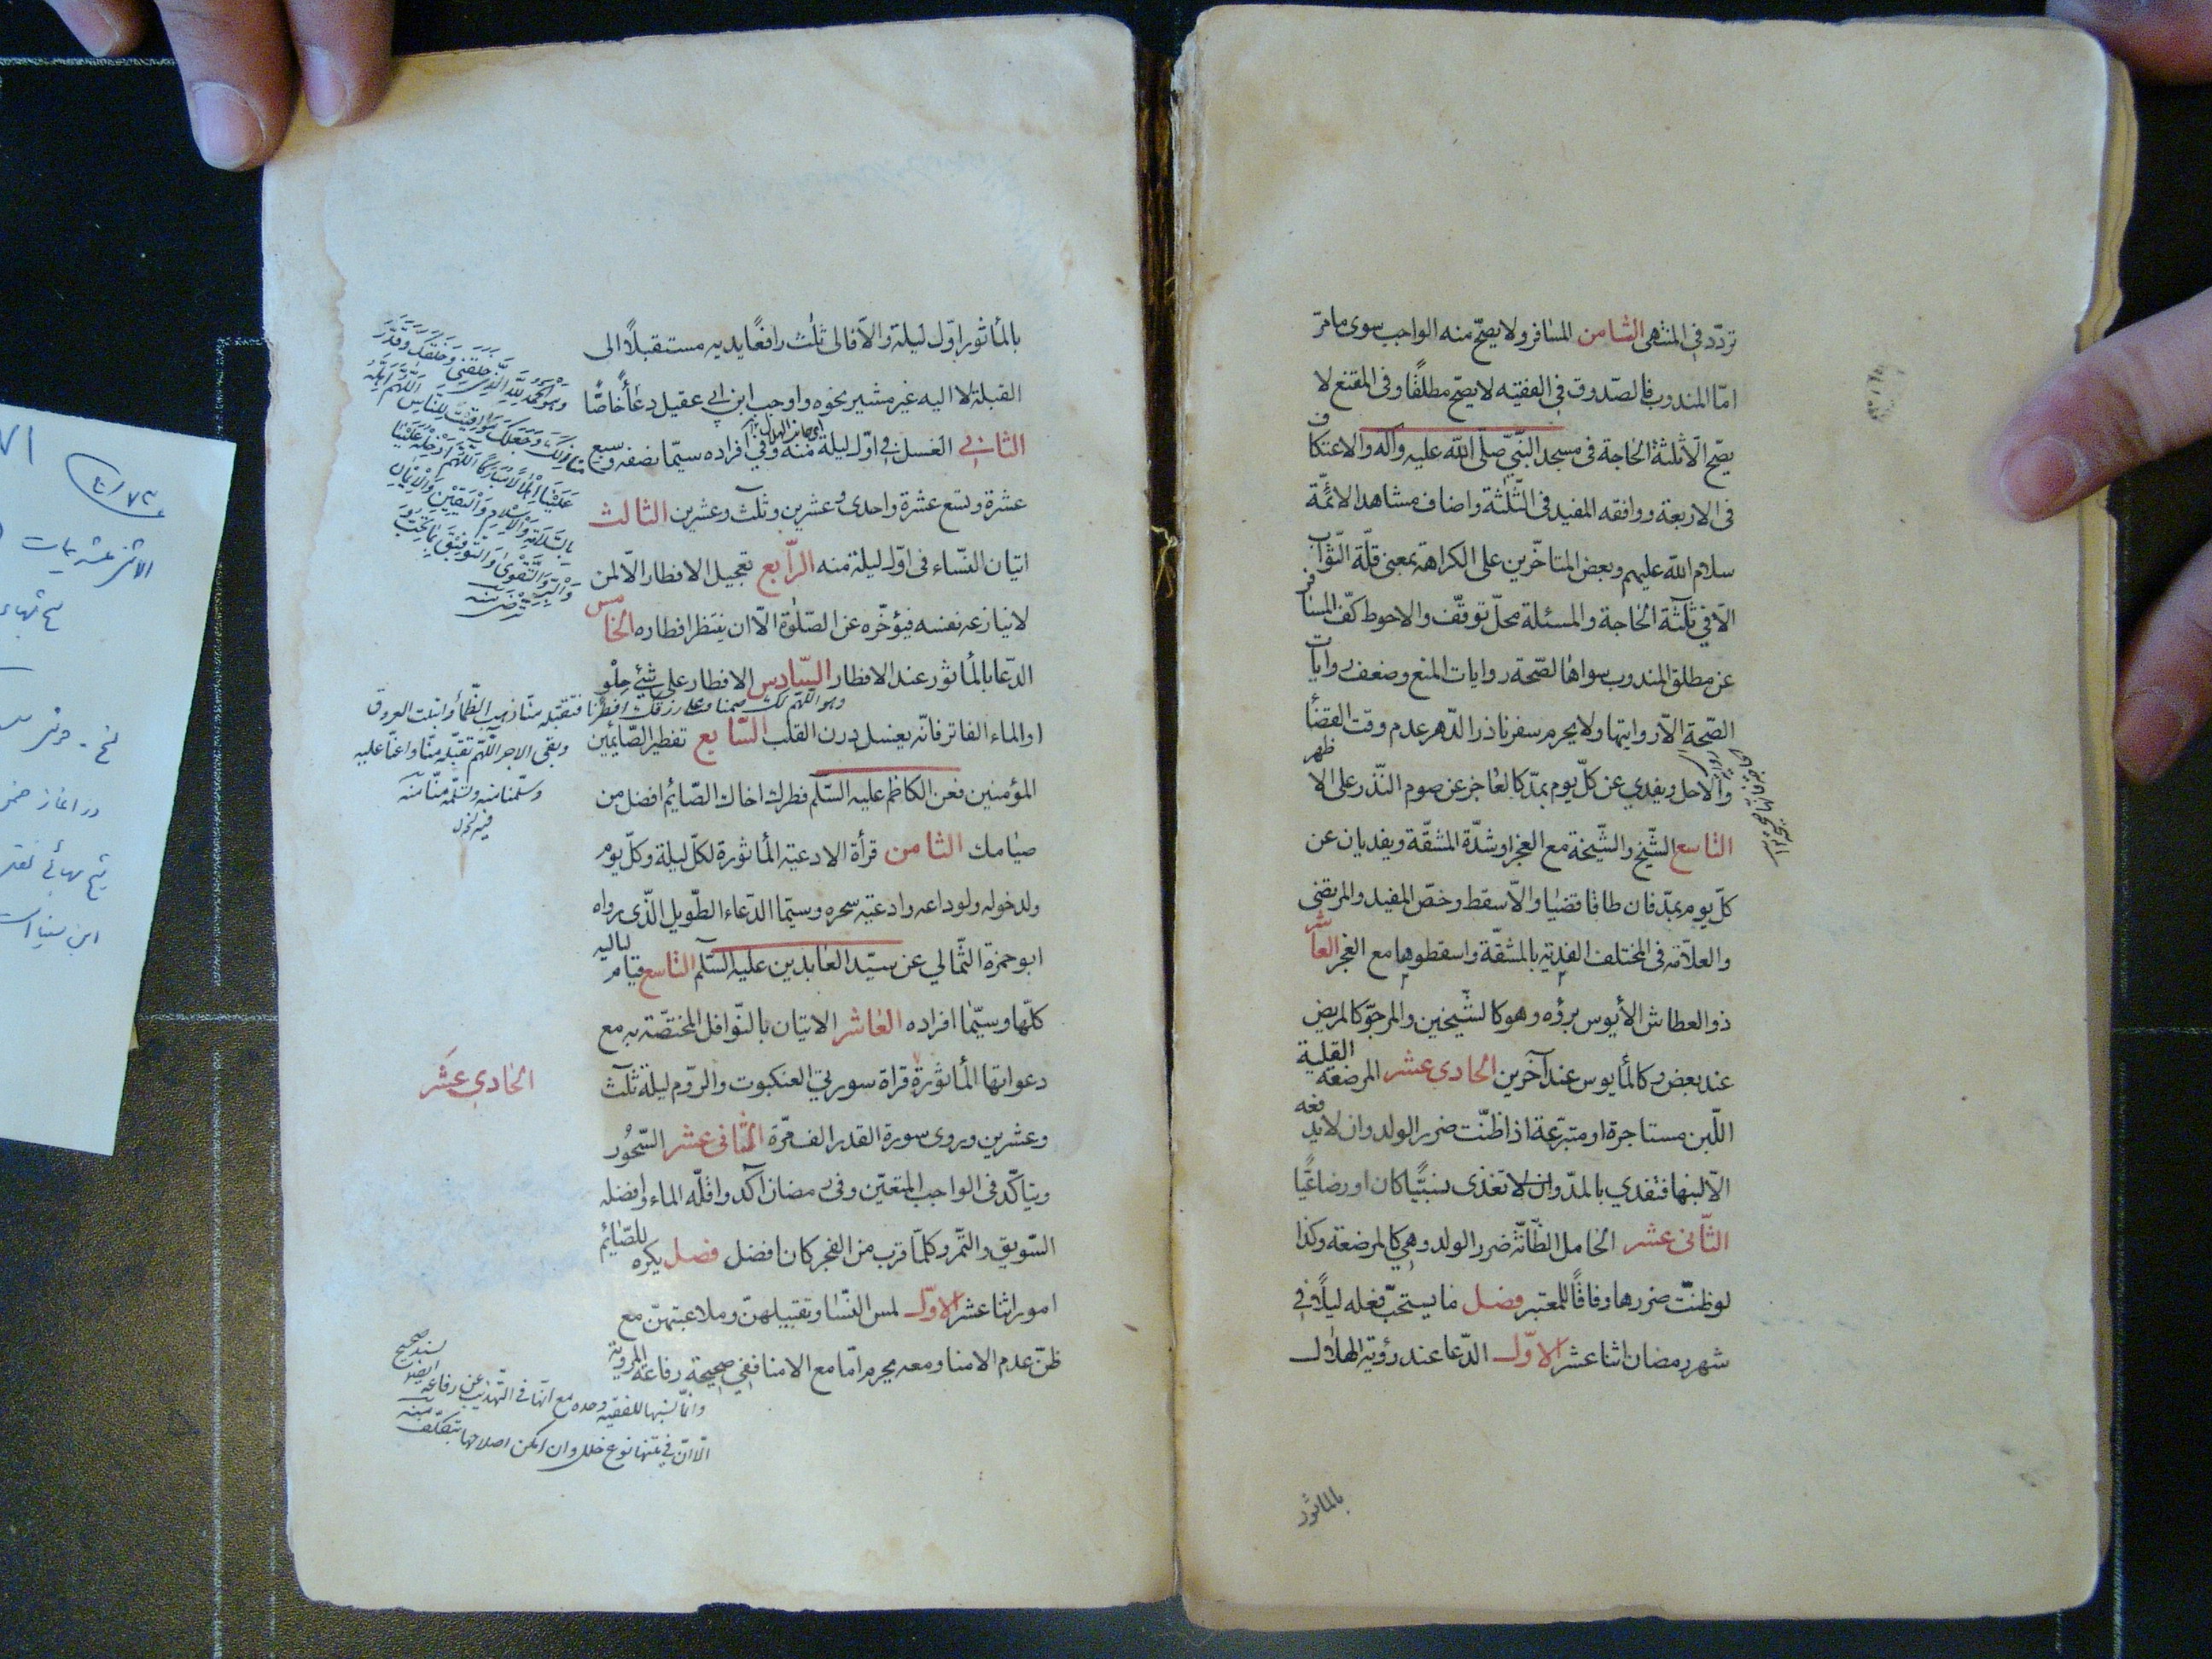 تردّد فى المنتهى الثامن المسافر ولا يصحّ منه الواجب سوى ما مرّ
امّا المندوب فالصّدوق فى الفقيه لا يصحّ مطلقًا وفى المقنع لا
يصحّ الّا ثلثة الحاجة فى مسجد النّبىّ صلّى اللّه عليه وآله والاعتكاف
فى الاربعة ووافقه المفيد فى الثّلثة واضاف مشاهد الائمّة
سلام اللّه عليهم وبعض المتاخّرين على الكراهة بمعنى قلّة الثّواب
الّا فى ثلثة الحاجة والمسئلة محلّ توقّف والاحوط كفّ المسافر
عن مطلق المندوب سواها لصّحة روايات المنع وضعف روايات
الصّحة الّا روايتها ولا يحرم سفر ناذر الدّهر عدم وقت القضأ
والاحل ويفدي عن كلّ يوم بمدّ كالعاجز عن صوم النّذر على الاظهر
التاسع الشّيخ والشّيخة مع العجز او شدّة المشقّة ويفديان عن
كلّ يوم بمدّ فان طاقا قضيا والّا سقط وخصّ المفيد والمرتضى
والعلّامة فى المختلف الفدية بالمشقّة واسقطوها مع العجز العاشر
ذو العطاش الأيوس برؤه وهو كالشّيخين والمرجوّ كالمريض
عند بعض وكالمأيوس عند آخرين الحادى عشر المرضعة القليلة
اللّبن مستاجرة او متبرّعة اذا ظنّت ضرر الولد وان لا يدفعه
الّا لبنها فتفدي بالمدّ وان لا تغذى نسبيًّا كان او رضاعيًّا
الثّانى عشر الحامل الظّانّة ضرر الولد وهى كالمرضعة وكذا
لو ظنّت ضررها وفاقًا للمعتبر فصل ما يستحبّ فعله ليلًا فى
شهر رمضان اثنا عشر الاوّل الدّعا عند رؤية الهلال
بالماثور
بالمأثور اوّل ليلة والّا فالى ثلث رافعًا يديه مستقبلًا الى
القبلة لا اليه غير مشير نحوه واوجب ابن ابى عقيل دعأً خاصًّا
الثانى الغسل فى اوّل ليلة منه وفى افراده سيّما نصفه وسبع
عشرة وتسع عشرة واحدى وعشرين وثلث وعشرين الثالث
اتيان النسّاء فى اوّل ليلة منه الرّابع تعجيل الافطار الّا لمن
لا ينازعه نفسه فيؤخّره عن الصّلوة الّا ان ينتظر افطاره الخامس
الدّعا بالمأثور عند الافطار السّادس الافطار على شئ حلو
وهو اللّهمّ لك صمنا وعلى رزقك افطرنا فتقبّله منّا ذهب الظّمأ وابتلت العروق
وبقى الاجر اللّهمّ تقبّله منّا واعنّا عليه
وسلّمنا فيه وتسلّمه منّا
او الماء الفاتر فانّه يغسل درن القلب السّابع تفطير الصّايمين
المؤمنين فعن الكاظم عليه السّلم فطرك اخاك الصّايم افضل من
صيامك الثامن قرأة الادعية المأثورة لكلّ ليلة وكلّ يوم
ولدخوله ولوداعه وادعية سحره وسيّما الدّعاء الطّويل الّذى رواه
ابو حمزة الثّمالي عن سيّد العابدين عليه السّلم التاسع قيام لياليه
كلّها وسيّما افراده العاشر الاتيان بالنّوافل المختصّة به مع
دعواتها المأثورة الحادي عشر قراة سورتى العنكبوت والرّوم ليلة ثلث
وعشرين وروى سورة القدر الف مرّة الثّانى عشر السّحُور
ويتاكّد فى الواجب المتعيّن وفى رمضان آكد واقلّه الماء وافضله
السّويق والتّمر وكلّما قرب من الفجر كان افضل فصل يكره للصّايم
امور اثنا عشر الاوّل لمس النّسا وتقبيلهنّ وملاعبتهنّ مع
ظنّ عدم الامنا ومعه يحرم امّا مع الامنا ففى صحيحة رفاعة المروية
وانّما نسبها للفقيه وحده مع انّها فى التّهذيب عن رفاعة ايضًا بسند صحيح
الّا انّ فى متنها نوع خلل وان امكن اصلاحها بتكلّف منه